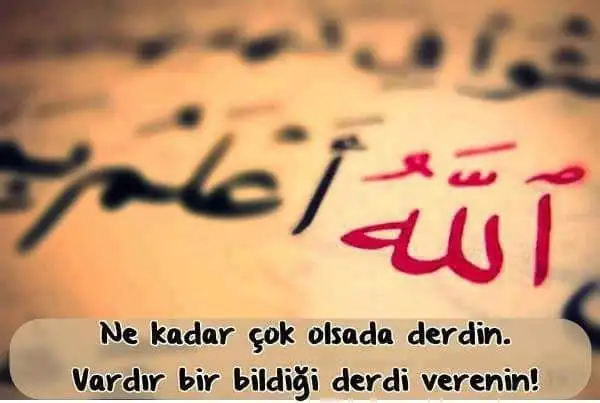 ٱللَّهُ أَعْلَمُ
Ne kadar çok olsada derdin.
Vardır bir bildiği derdi verenin!